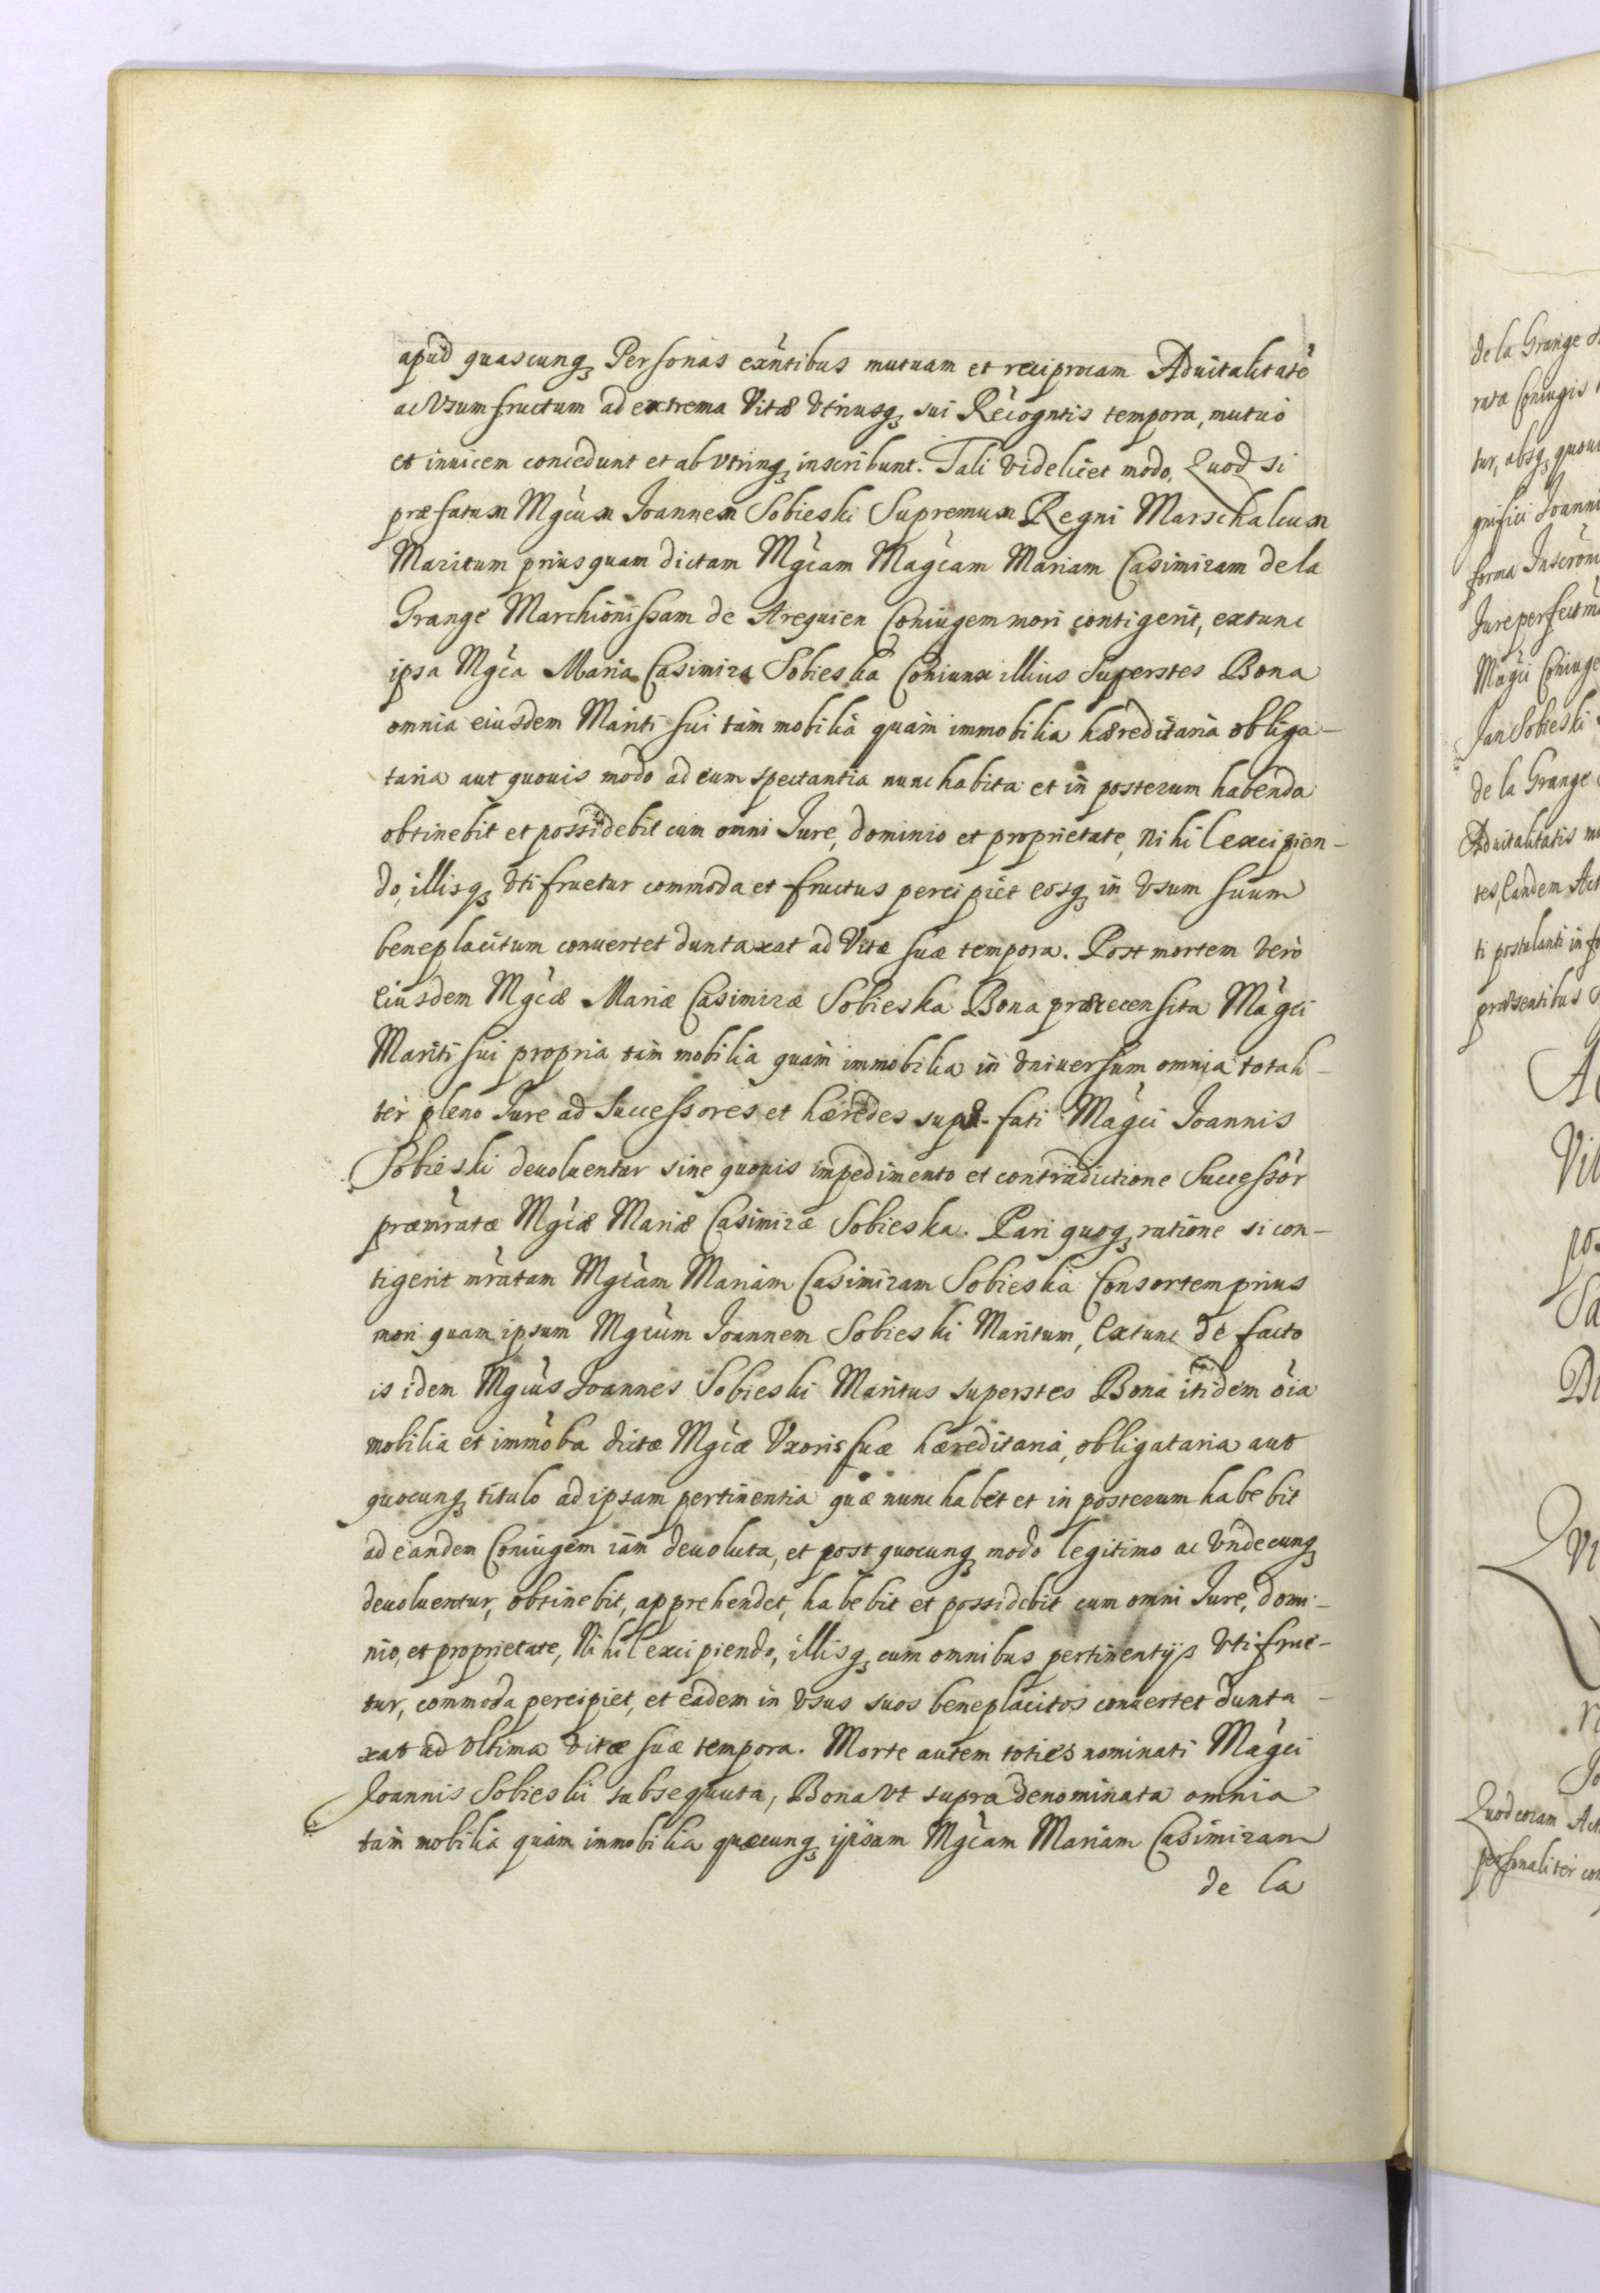 apud quascunq, Personas exñtibus mutuam et reciprocam Aduitalitatẽ
ac Vsumfructum ad extrema Vitæ Vtriusq, sui Recogntis tempora, mutuò
et inuicem concedunt et ab vtrinq, inscribunt. Tali videlicet modo, Quod si
præfatum Mgcum Joannem Sobieski Supremum Regni Marschalcum
Maritum priusquam dictam Mgcam Magcam Mariam Casimiram de la
Grange Marchionissam de Arequien Coniugem mori contigerit, extunc
ipsa Mgca Maria Casimira Sobieska Coniunx illius Superstes Bona
omnia eiusdem Mariti sui tàm mobilia quàm immobilia hæreditaria obliga-
taria aut quouis modo ad eum spectantia nunc habita et in posterum habenda
obtinebit et possidebit cum omni Jure, dominio et proprietate, Nihil excipien-
do, illisq, vti fruetur commoda et fructus percipiet eosq, in Vsum suum
beneplacitum conuertet duntaxat ad Vitæ suæ tempora. Post mortem verò
eiusdem Mgcæ Mariæ Casimiræ Sobieska Bona præecensita Magci
Mariti sui propria tàm mobilia quàm immobilia in vniuersum omnia totali-
ter pleno Jure ad Successores et hæredes supra-fati Magci Joannis
Sobieski deuoluentur sine quouis impedimento et contradictione Successor
prænratæ Mgcæ Mariæ Casimiræ Sobieska. Pari quoq, ratione si con-
tigerit nratam Mgcam Mariam Casimiram Sobieska Consortem prius
mori quam ipsum Mgcum Joannem Sobieski Maritum, Extunc de facto
is idem Mgcus Joannes Sobieski Maritus superstes Bona itidem oia
mobilia et immoba dictæ Mgcæ Vxoris suæ hæreditaria, obligataria aut
quocunq, titulo ad ipsam pertinentia quæ nunc habet et in posterum habebit
ad eandem Coniugem iam deuoluta, et post quocunq, modo legitimo ac vndecunq,
deuoluentur, obtinebit, apprehendet, habebit et possidebit cum omni Jure, domi-
nio, et proprietate, Nihil excipiendo, illisq, cum omnibus pertinentijs vti frue-
tur, commoda percipiet, et eadem in vsus suos beneplacitos conuertet dunta-
xat ad vltima vitæ suæ tempora. Morte autem toties nominati Magci
Joannis Sobieski subsequuta, Bona vt supra denominata omnia
tàm mobilia quàm immobilia quæcunq, ipsam Mgcam Mariam Casimiram
de la